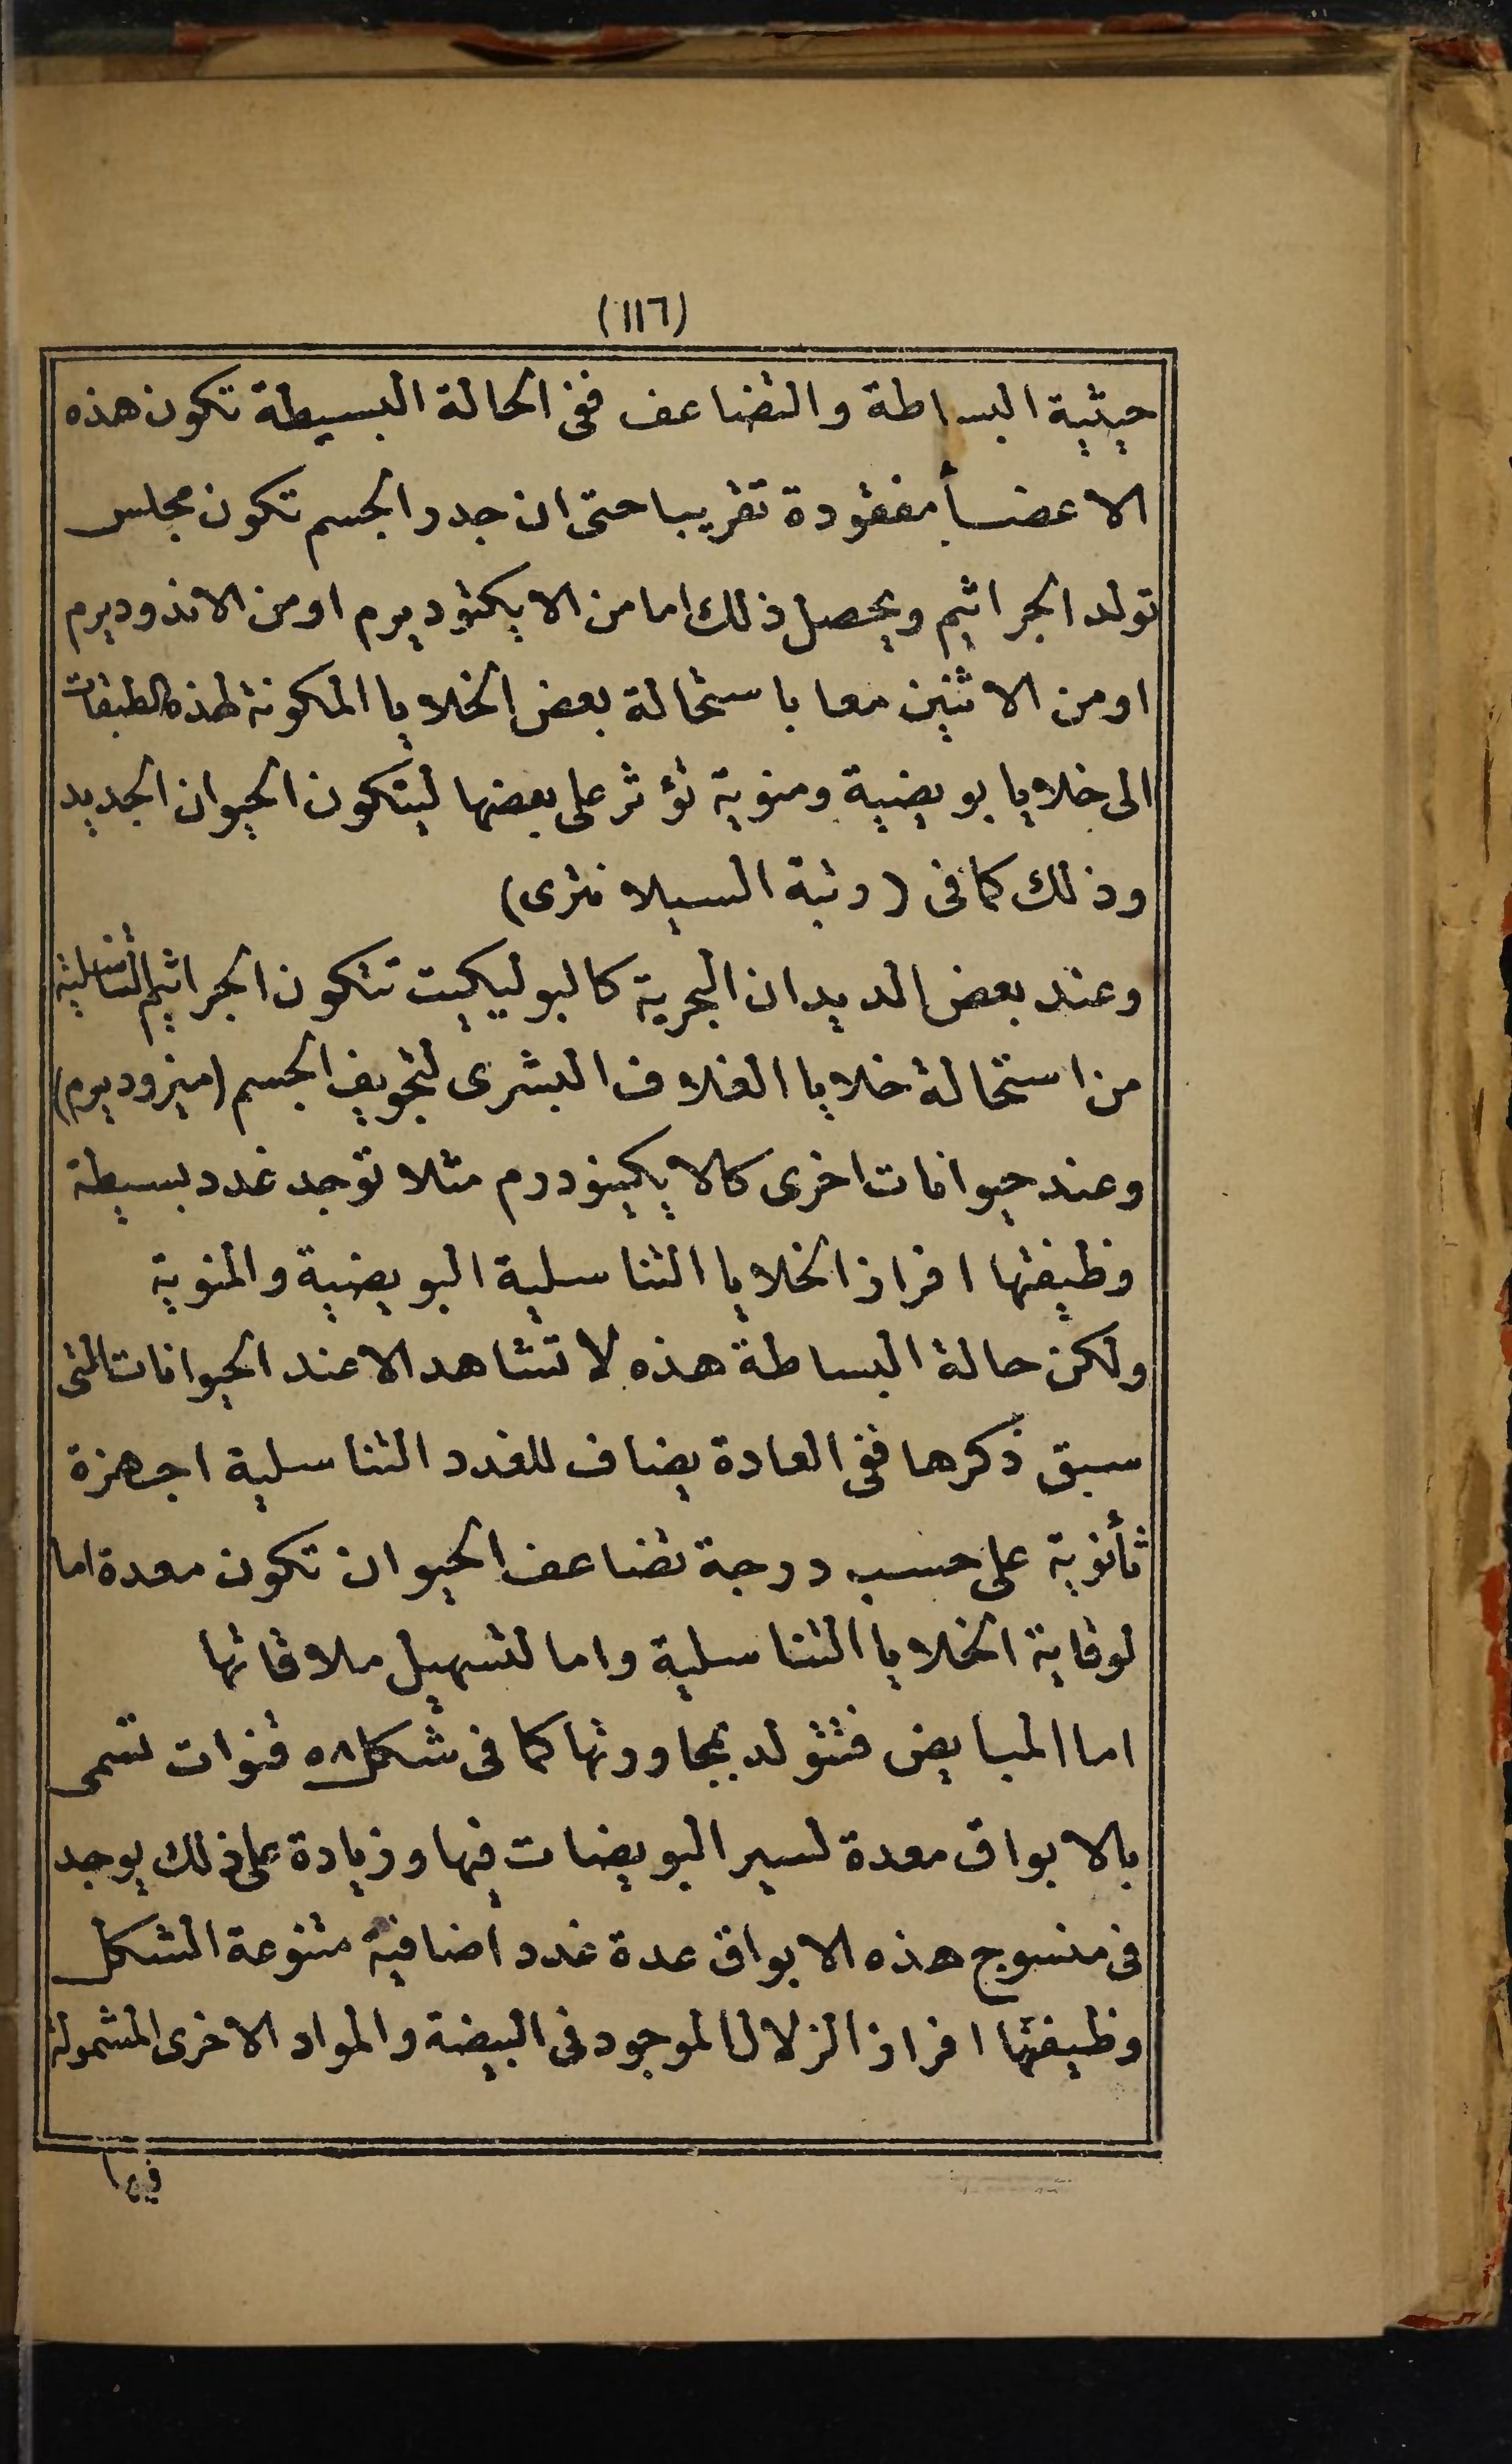 (١١٦)
حيثية البساطة والتضاعف ففى الحالة البسيطة تكون هذه
الاعضأ مفقودة تقريبا حتى ان جدر الجسم تكون مجلس
تولد الجراثيم ويحصل ذلك اما من الايكتوديرم اومن الاندوديرم
اومن الاثنين معا باستحالة بعض الخلايا المكونة لهذه الطبقات
الى خلايا بويضية ومنوية تؤثر على بعضها ليتكون الحيوان الجديد
وذلك كما فى (رتبة السيلانترى)
وعند بعض الديدان البحرية كالبوليكيت تتكون الجراثيم التناسلية
من استحالة خلايا الغلاف البشرى لتجويف الجسم (ميزوديرم)
وعند حيوانات اخرى كالايكينودرم مثلا توجد غدد بسيطة
وظيفتها افراز الخلايا التناسلية البويضية والمنوية
ولكن حالة البساطة هذه لا تشاهد الا عند الحيوانات التى
سبق ذكرها ففى العادة يضاف للغدد التناسلية اجهزة
ثأنوية على حسب درجة تضاعف الحيوان تكون معدة اما
لوقاية الخلايا التناسلية واما لتسهيل ملاقاتها
اما المبايض فتتولد بمجاورتها كما فى شكل ٥٨ قنوات تسمى
بالابواق معدة لسير البويضات فيها وزيادة على ذلك يوجد
فى منسوج هذه الابواق عدة غدد اضافية متنوعة الشكل
وظيفتها افراز الزلال الموجود فى البيضة والمواد الاخرى المشمولة
فيها